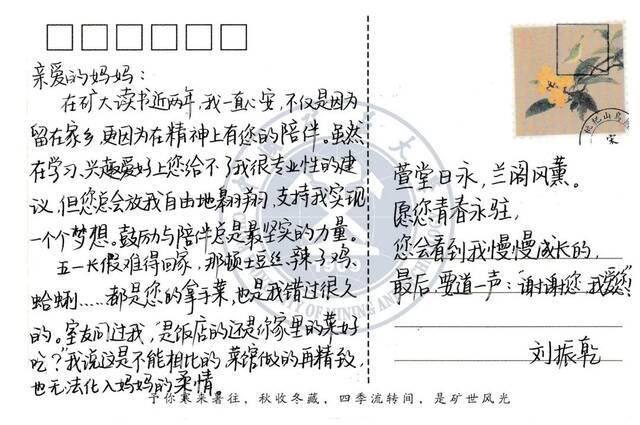 亲爱的妈妈：
在矿大读书近两年，我一直心安，不仅是因为
留在家乡，更因为在精神上有您的陪伴。虽然
在学习、兴趣爱好上您给不了我很专业性的建
议，但您总会放我自由地翱翔，支持我实现
一个个梦想。鼓励与陪伴总是最坚实的力量。
五一长假难得回家，那顿土豆丝、辣子鸡、
蛤蜊……都是您的拿手菜，也是我错过很久
的。室友问过我，“是饭店的还是你家里的菜好
吃？”我说这是不能相比的，菜馆做的再精致，
也无法化入妈妈的柔情。
萱堂日永，兰阁风薰。
愿您青春永驻，
您会看到我慢慢成长的，
最后，要道一声：“谢谢您，我爱您！”
刘振乾
予你寒来暑往，秋收冬藏，四季流转间，是矿世风光
1909